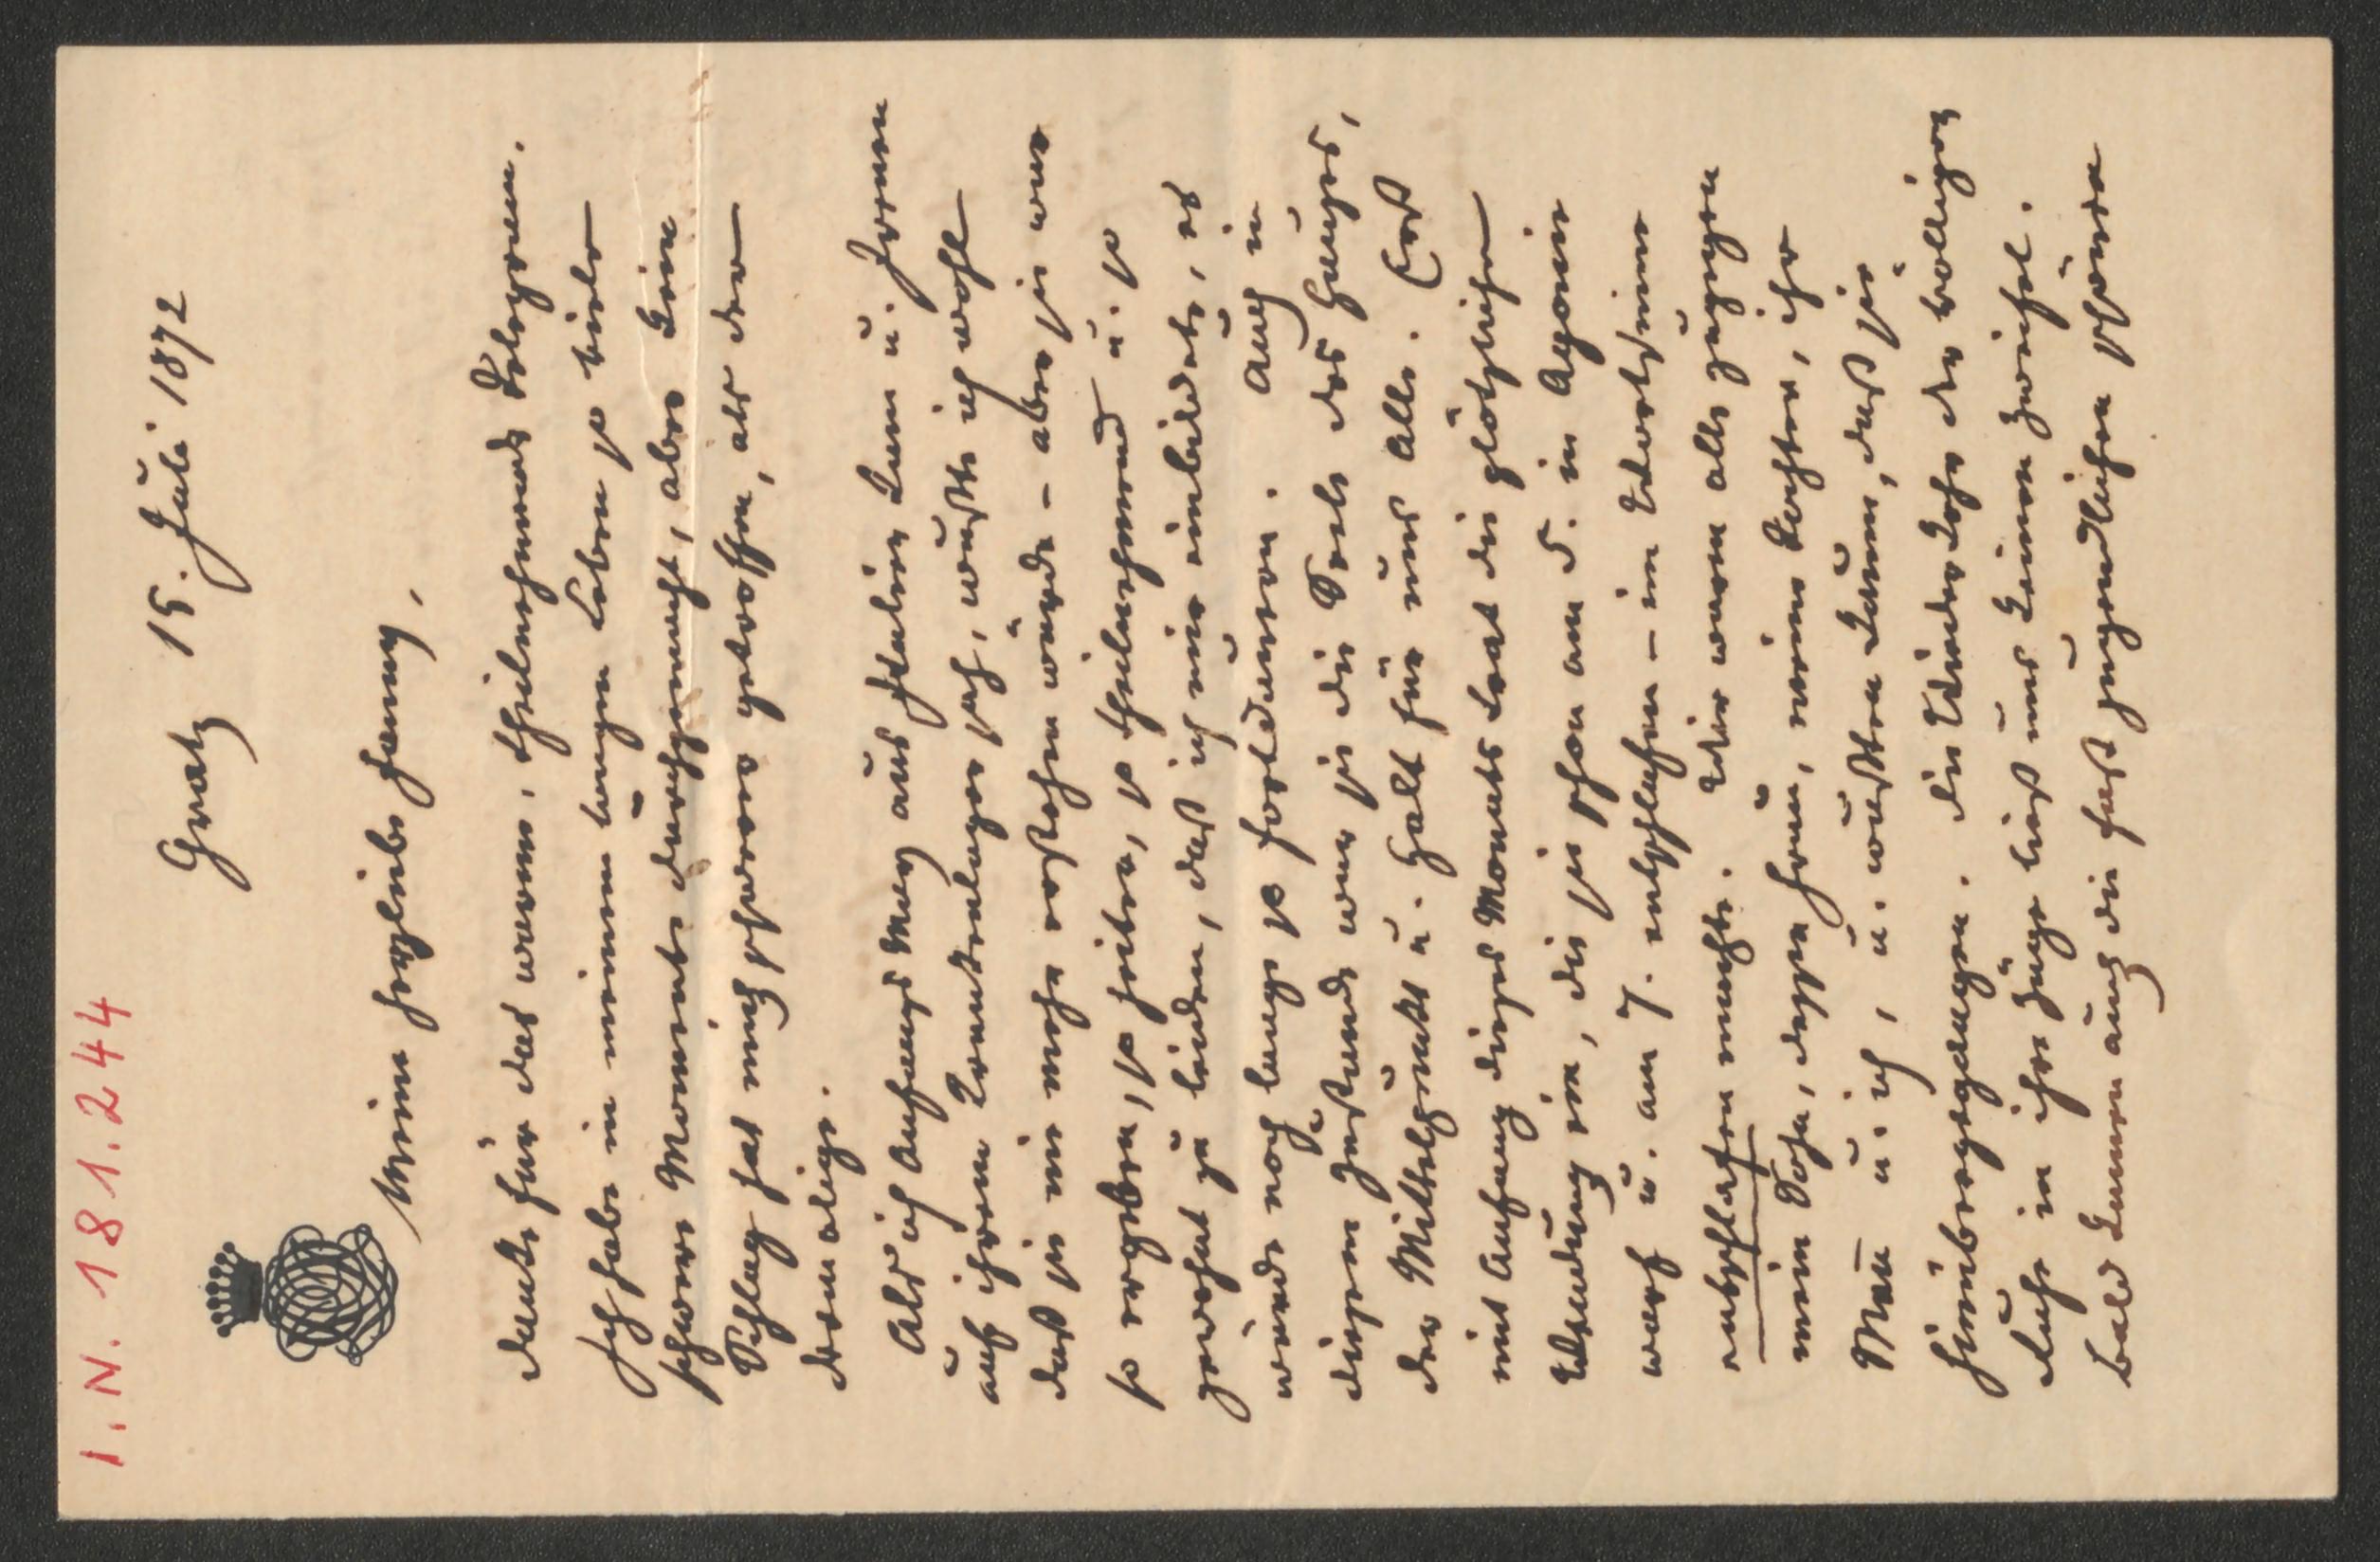 I.N. 181.244
Gratz 15. Juli 1872
Meine herzliebe Fanny,
Danke für das warme, theilnehmende Telegramm.
Ich habe in meinem langen Leben so viele
schwere Momente durchgemacht, aber kein
Schlag hat mich schwerer getroffen, als der
dermalige.
Als ich Anfangs May aus Italien kam u.
auf ihrem Krankenlager sah, wußte ich wohl
daß sie nie mehr erstehen würde – aber sie war
so ergeben, so heiter, so theilnehmend u. so
gewohnt zu leiden, daß ich mir einbildete, es
würde noch lange so fortdauern. Auch in
diesem Zustande war sie die Seele des Hauses,
der Mittelpunkt u. Halt für uns Alle. Erst
mit Anfang dieses Monats trat die plötzliche
Wendung ein, die sie schon am 5. in Agonie
warf u. am 7. entschlafen – im Wortsinne
entschlafen machte. Wir waren alle zugegen
mein Sohn, dessen Frau, meine Tochter, ihr
Mañ u. ich, u. wußten kaum, daß sie
hinübergegangen. Die Wiederkehr der völligen
Ruhe in ihre Züge ließ uns keinen Zweifel.
Bald kamen auch die fast jugendlichen schönen